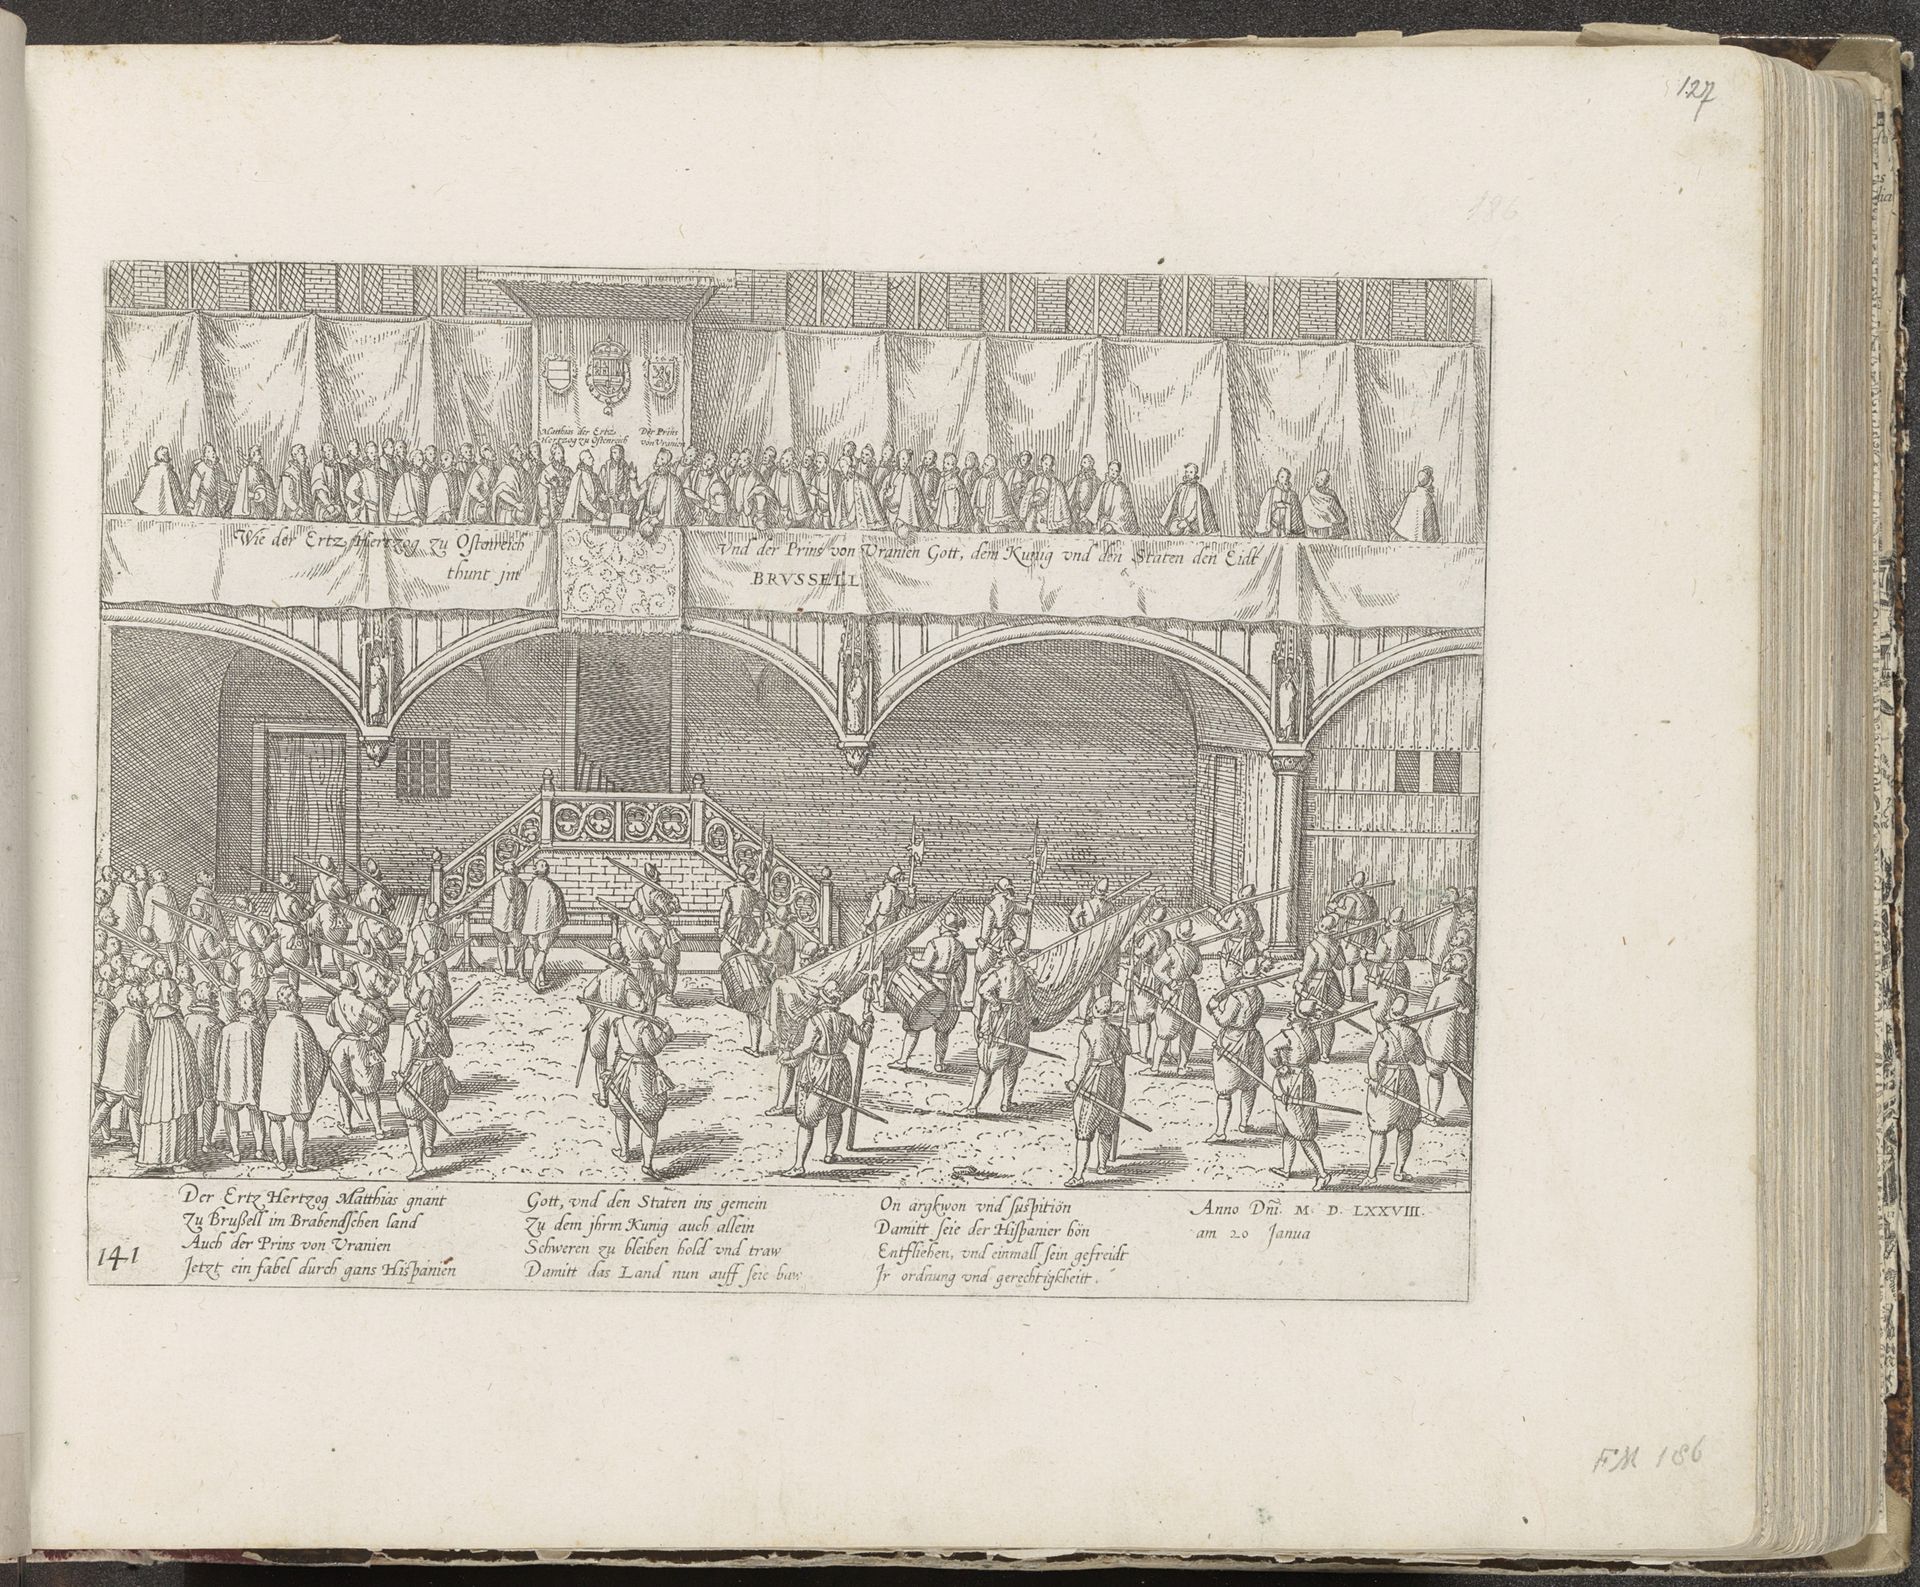 127
186
Matthias der Ertz
Hertzog zu Ostenreich
Der Prins
von Vranien
Wie der Ertz Hertzog zu Ostenreich
thunt jm
Vnd der Prins von Vranien Gott, dem Kunig vnd den Staten den Eidt
BRVSSELL
Der Ertz Hertzog Matthias gnant
Zu Brußell im Brabendschen land
Auch der Prins von Vranien
Jetzt ein fabel durch gans Hispanien
Gott, vnd den Staten ins gemein
Zu dem jhrm Kunig auch allein
Schweren zu bleiben hold vnd traw
Damitt das Land nun auff seie baw
On argkwon vnd suspitiön
Damitt seie der Hispanier hön
Entfliehen, vnd einmall sein gefreidt
Jr ordnung vnd gerechtigkheitt.
Anno Dn̄i. M. D. LXXVIII.
am 20 Janua
141
FM 186